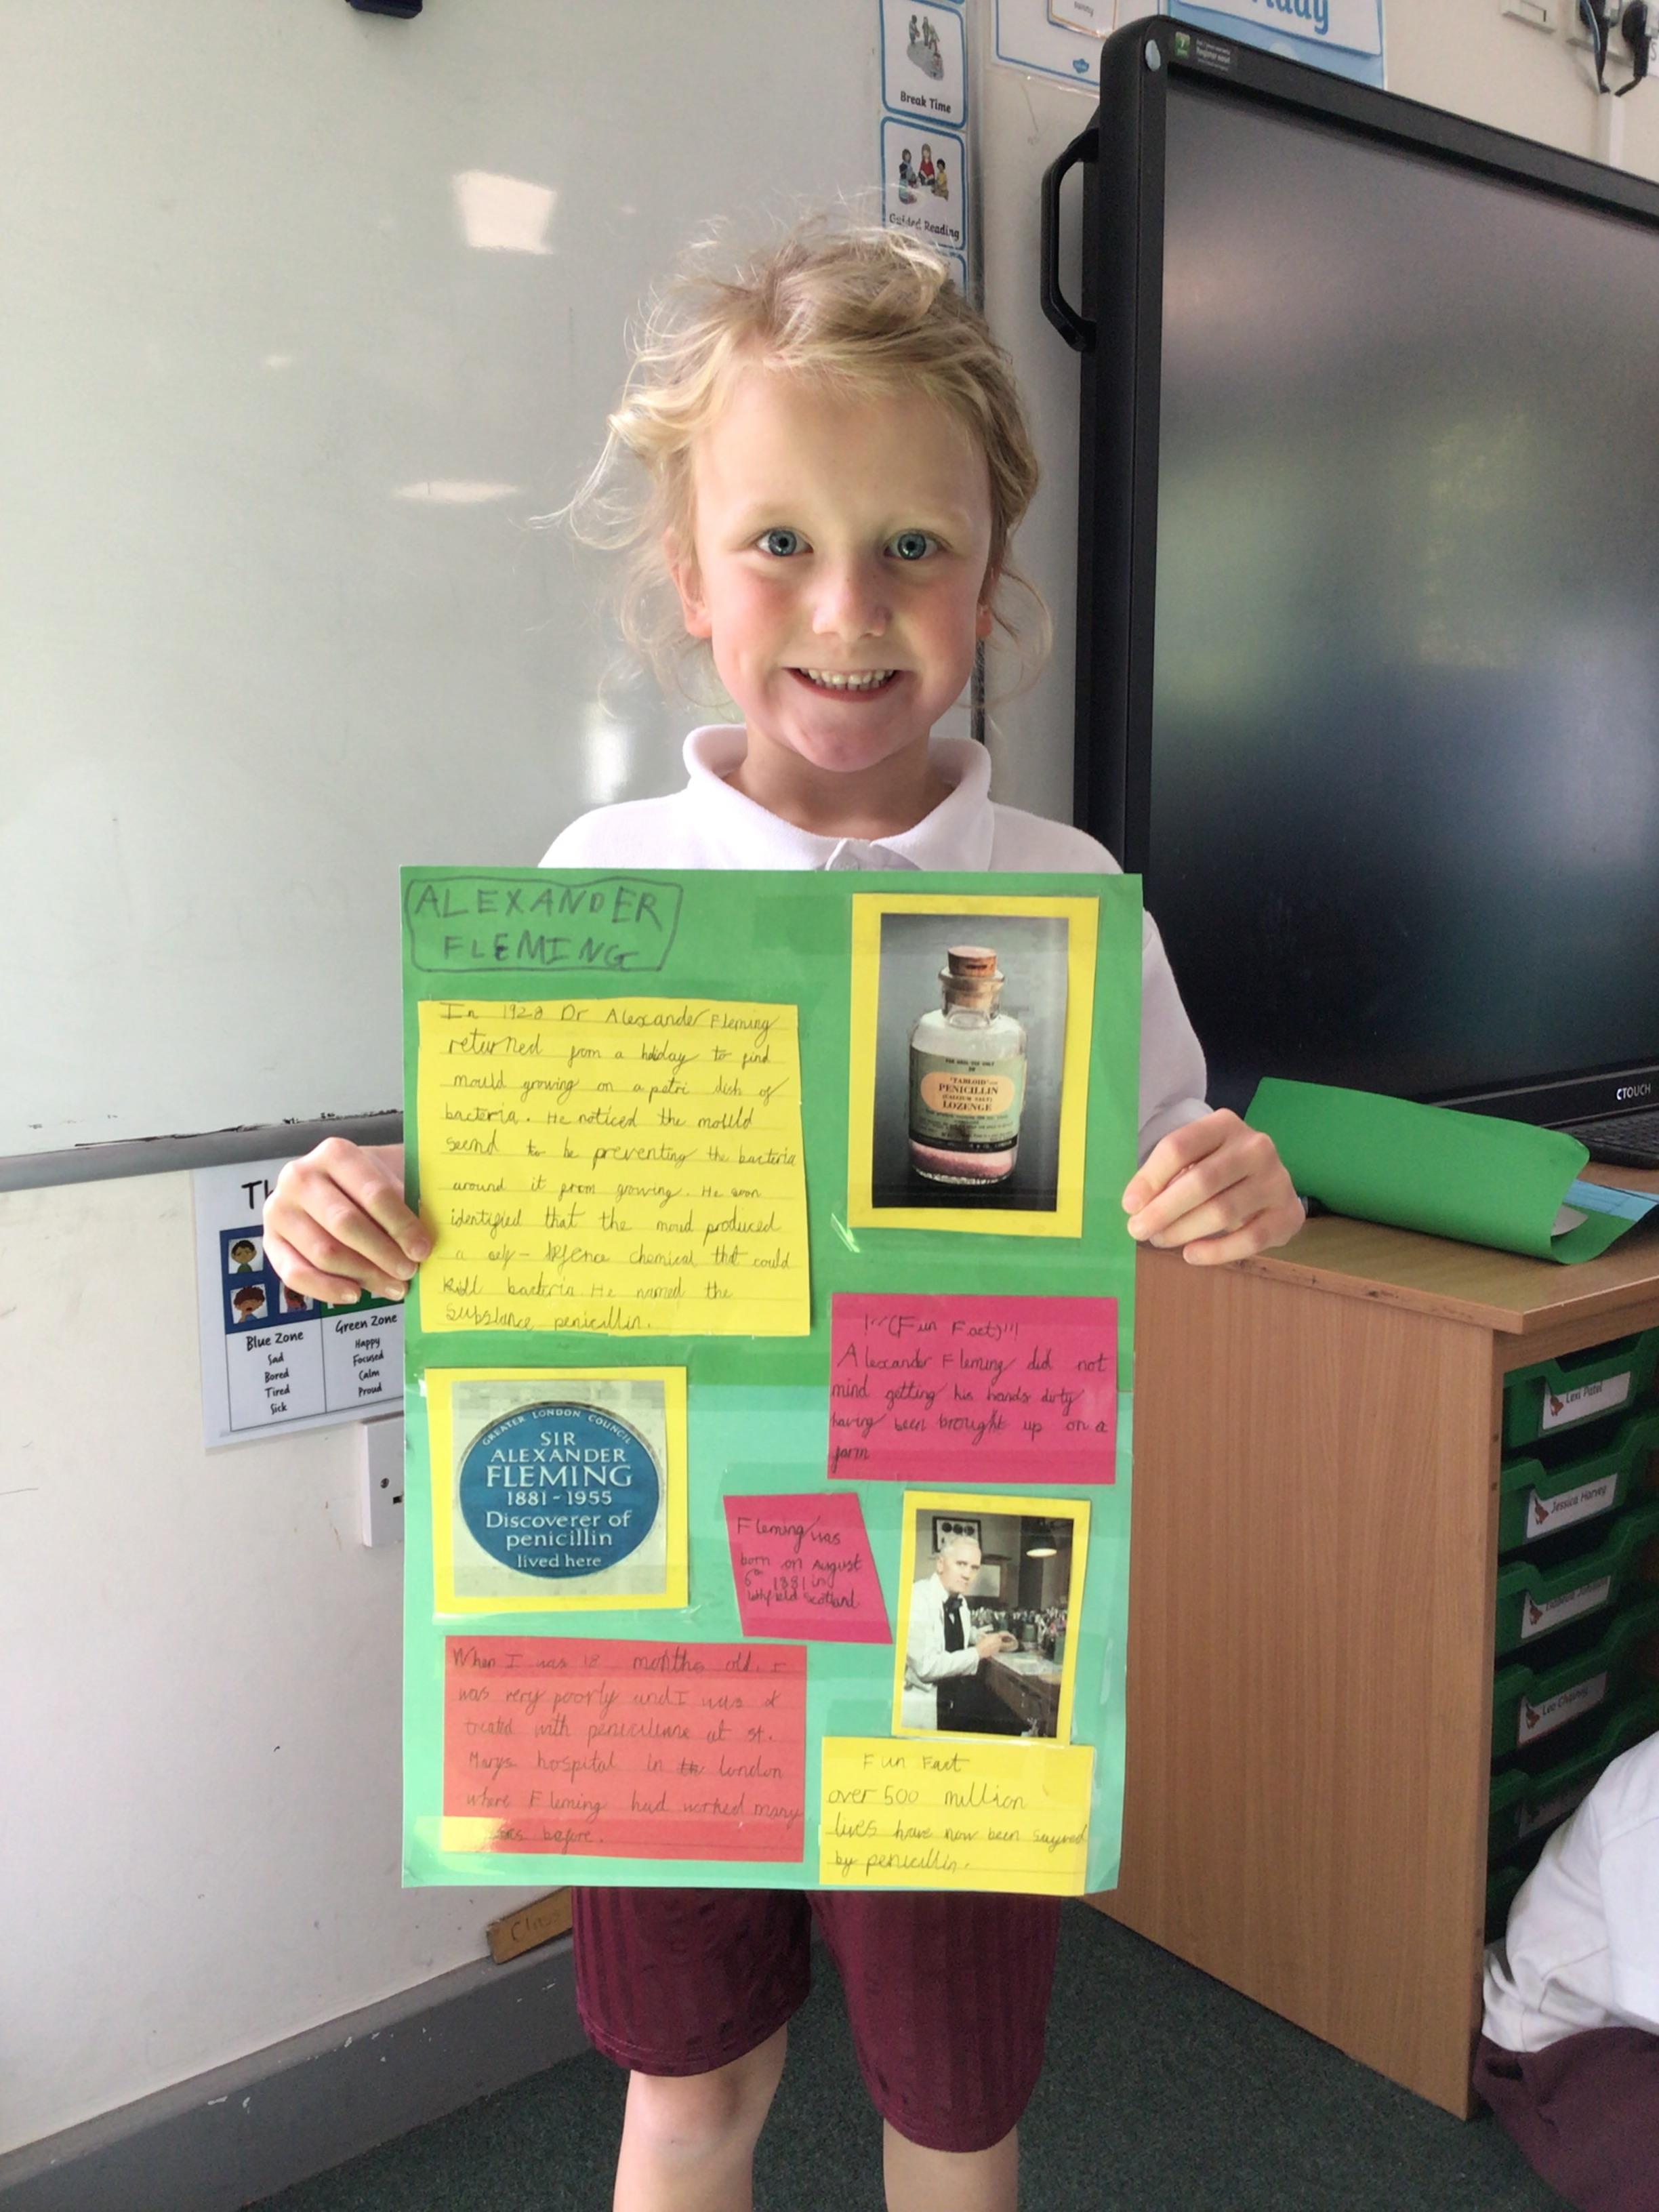 Break Time
Guided Reading
ALEXANDER
FLEMING
In 1928 Dr Alexander Fleming
returned from a holiday to find
mould growing on a petri dish of
bacteria. He noticed the mould
seemd to be preventing the bacteria
around it from growing. He soon
identified that the moud produced
a self-defence chemical that could
kill bacteria. He named the
substance penicillin.
"TABLOID"
PENICILLIN
(CALCIUM SALT)
LOZENGE
!"(Fun Fact)"!!
Alexander Fleming did not
mind getting his hands dirty
having been brought up on a
farm
GREATER LONDON COUNCIL
SIR
ALEXANDER
FLEMING
1881-1955
Discoverer of
penicillin
lived here
Fleming was
born on August
6th 1881 in
Scotland.
When I was 18 months old. I
was very poorly and I was
treated with at st.
Marys hospital in london
where Fleming had worked many
before.
Fun Fact
over 500 million
lives have now been
by penicillin.
Blue Zone
Sad
Bored
Tired
Sick
Green Zone
Happy
Focused
Calm
Proud
CTOUCH
Lexi Patel
Jessica Harvey